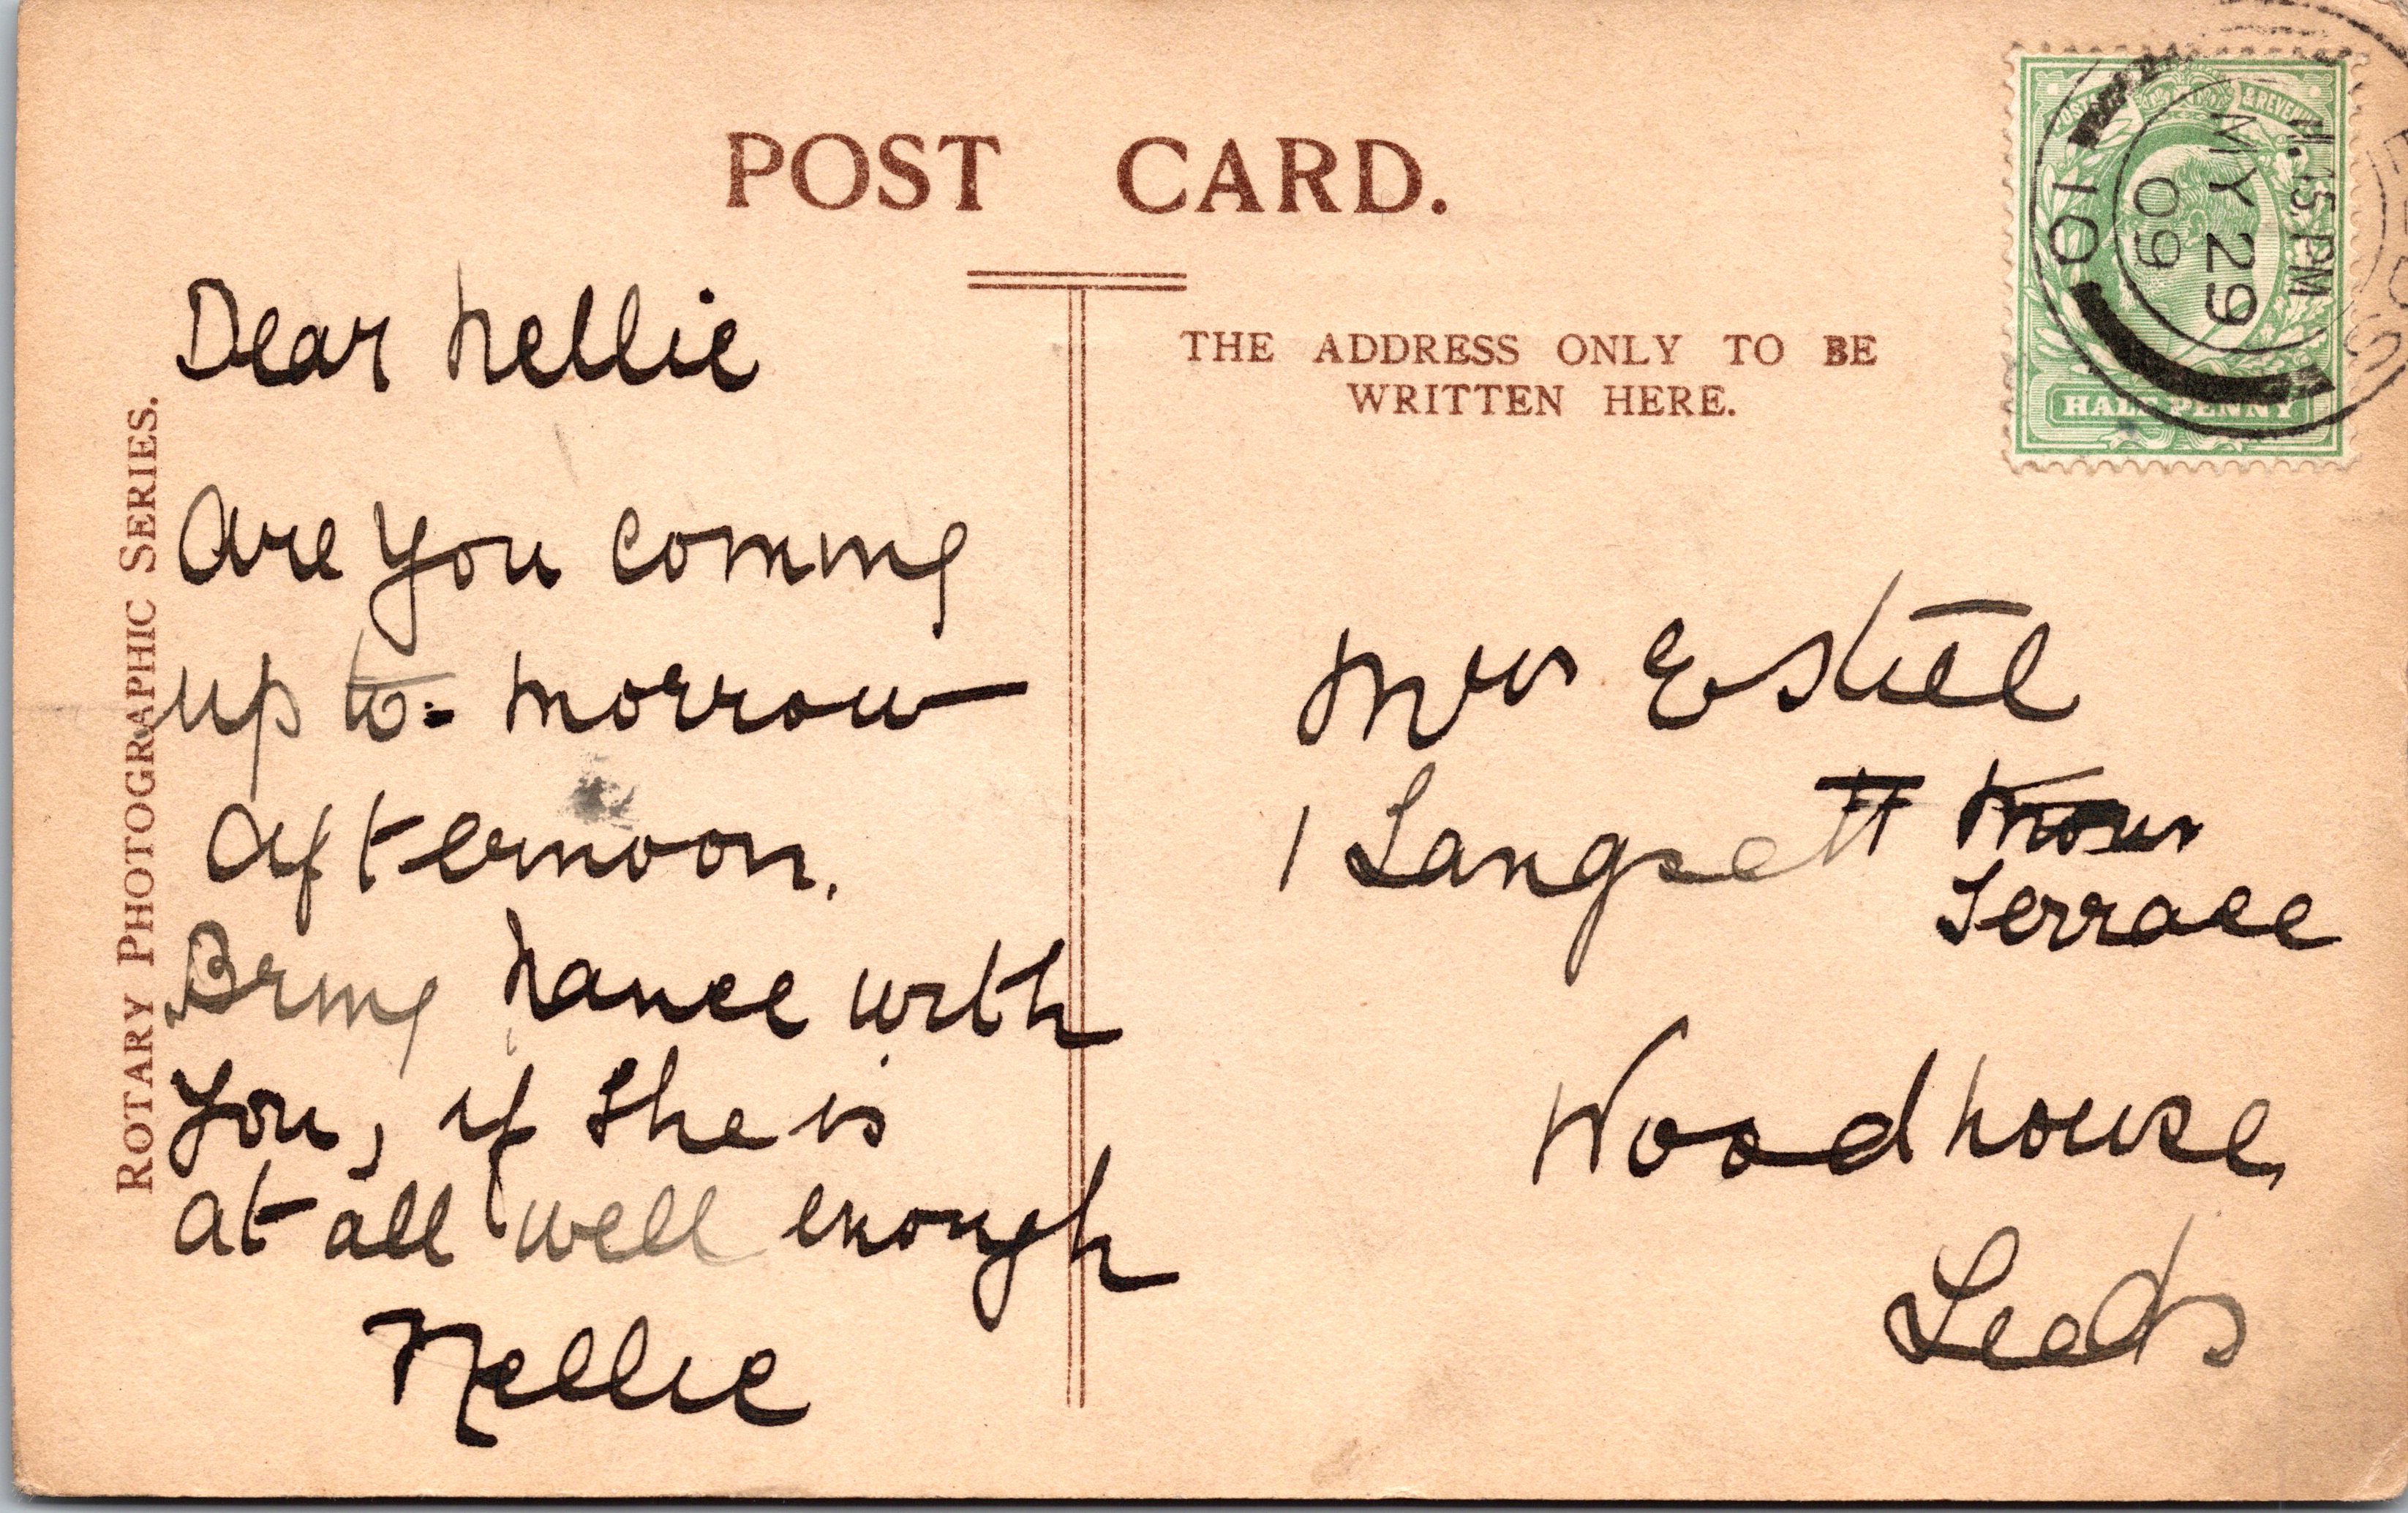 POST CARD.
THE ADDRESS ONLY TO BE
WRITTEN HERE.
ROTARY PHOTOGRAPHIC SERIES.
Dear Nellie
Are you coming
up to-morrow
afternoon.
Bring Nance with
you, if she is
at all well enough
Nellie
Mrs
1 Langsett
Terrace
Woodhouse
Leeds
POSTAGE & REVENUE
HALF PENNY
LEEDS
11.15 PM
MY 29
09
10